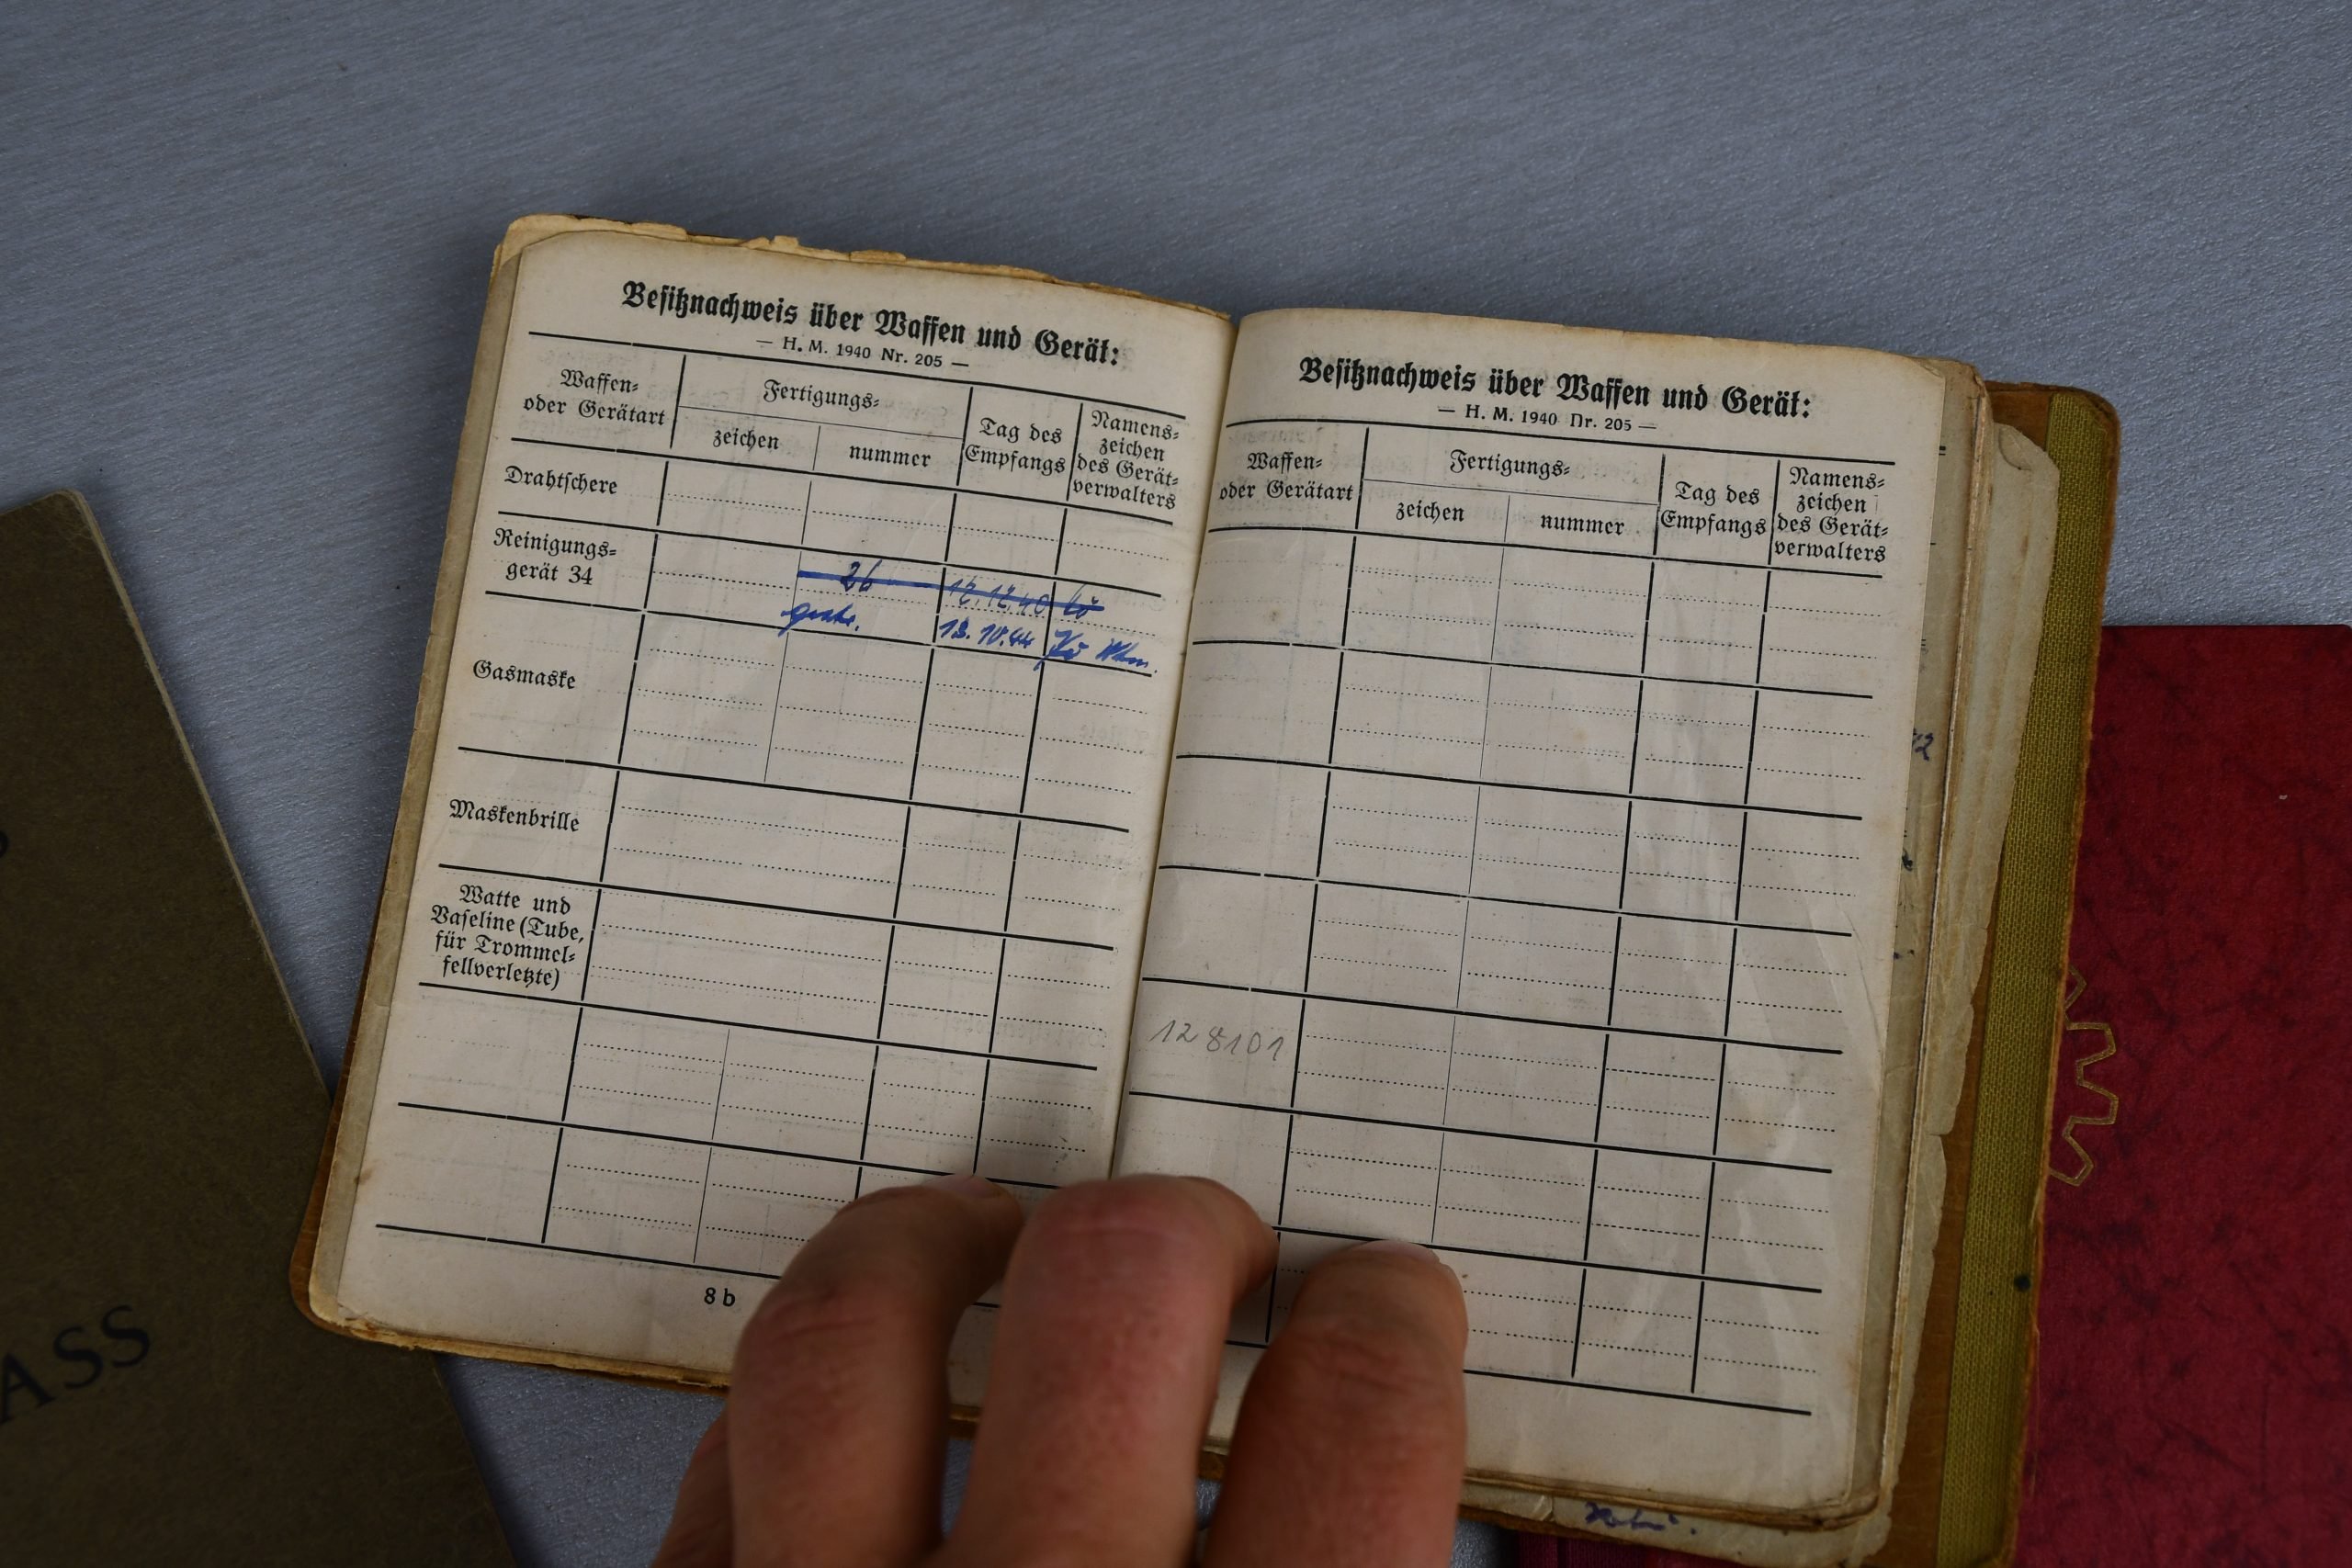 Besitznachweis über Waffen und Gerät:
— H. M. 1940 Nr. 205 —
Waffen-
oder Gerätart
Fertigungs-
zeichen
nummer
Tag des
Empfangs
Namens-
zeichen
des Gerät-
verwalters
Drahtschere
Reinigungs-
gerät 34
26 12.12.40
13.10.44
Gasmaske
Maskenbrille
Watte und
Vaseline (Tube,
für Trommel-
fellverletzte)
8 b
Besitznachweis über Waffen und Gerät:
— H. M. 1940 Nr. 205 —
Waffen-
oder Gerätart
Fertigungs-
zeichen
nummer
Tag des
Empfangs
Namens-
zeichen
des Gerät-
verwalters
128101
ASS